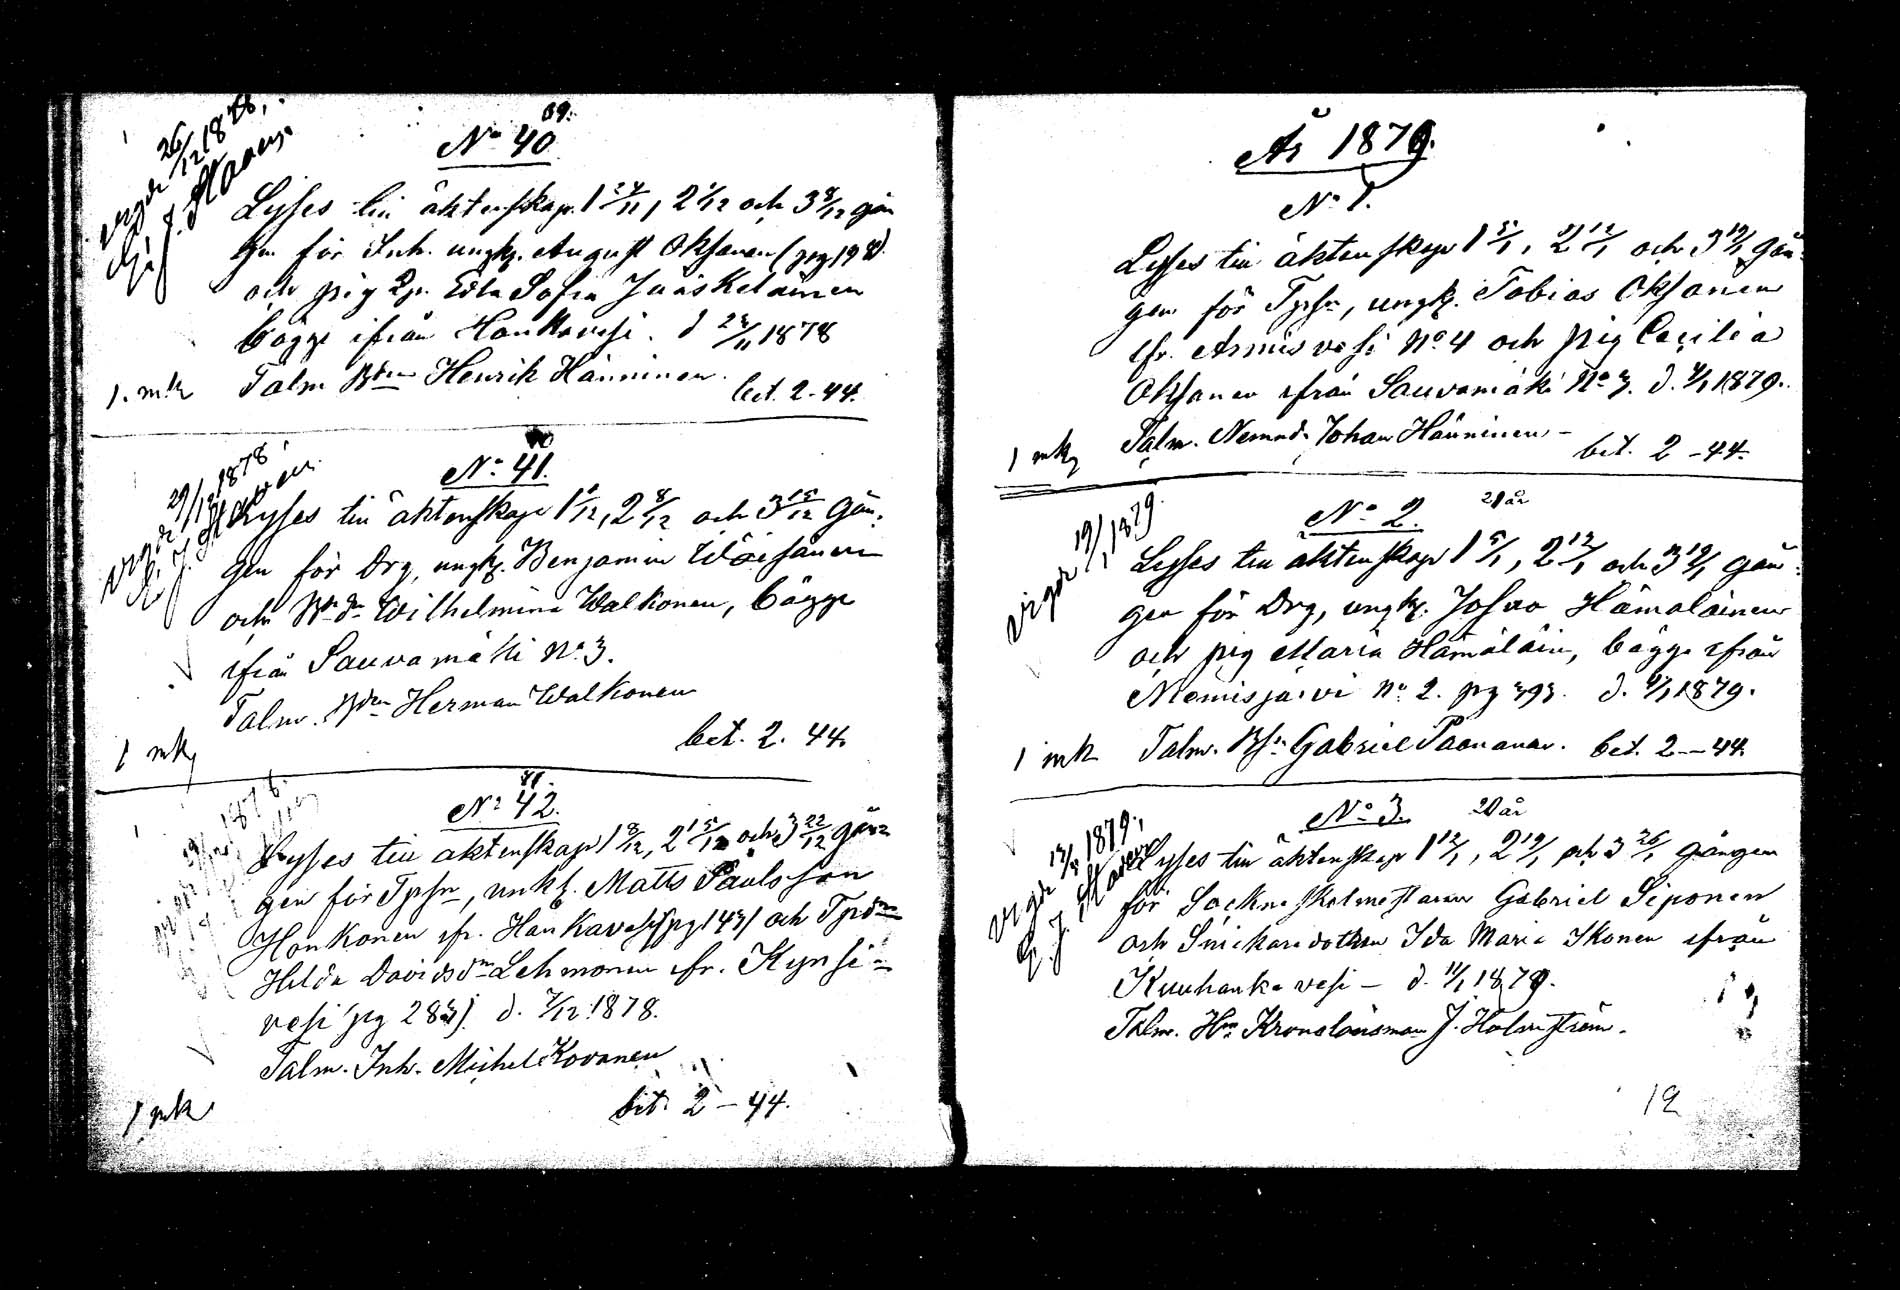 39.
No 40
Vigde 26/12 1878,
Lysses till äktenskap 1 24/11, 2 1/12 och 3 8/12 gån
gen för Inh. ungk. August Oksanen (pag 198)
och pig Edla Sofia Jääskeläinen
bägge ifrån Hankavesi. d 23/11 1878
Talm Bden Henrik Hänninen.
1. mk
bet. 2-44.
40
No 41.
Vigde 29/12 1878
Lysses till äktenskap 1 1/12, 2 8/12 och 3 15/12 gån-
gen för Drg, ungk. Benjamin Wäisänen
och Wilhelmina Walkonen, bägge
ifrån Sauvamäki No 3.
Talm. Bden Herman Walkonen
1 mk
bet. 2. 44.
41.
No 42.
Lysses till äktenskap 1 8/12, 2 15/12 och 3 22/12 gån-
gen för Tpsn, unk. Matts Paulsson
Honkonen ifr. Hankavesi (pg 143) och Tpdtr
Hilda Davidsdr Lehmonen ifr. Kynsi-
vesi (pg 283) d. 7/12 1878.
Talm. Inh. Michel Kovanen
1 mk
bet. 2-44.
År 1879.
No 1.
Lysses till äktenskap 1 5/1, 2 12/1 och 3 19/1 gån-
gen för Tpsn, ungk. Tobias Oksanen
ifr. Armisvesi No 4 och pig Cecilia
Oksanen ifrån Sauvamäki No 3. d. 4/1 1879.
Talm. Nemnd. Johan Hänninen -
1 mk
bet. 2-44.
No 2. 21 år
Vigde 19/1 1879.
Lysses till äktenskap 1 5/1, 2 12/1 och 3 19/1 gån-
gen för Drg, ungk. Johan Hämäläinen
och pig Maria Hämäläin, bägge ifrån
Niemisjärvi No 2. pg 393. d. 4/1 1879.
1 mk Talm. Gabriel Paananen. bet. 2-44.
No 3. 20 år
Vigde 1879,
Lysses till äktenskap 1 12/1, 2 19/1, och 3 26/1 gången
för Sockneskolmestaren Gabriel Siponen
och Snickaredottren Ida Maria Ikonen ifrån
Kuuhankavesi - d. 11/1 1879.
Talm. Hr Kronolänsman J. Holmström.
12